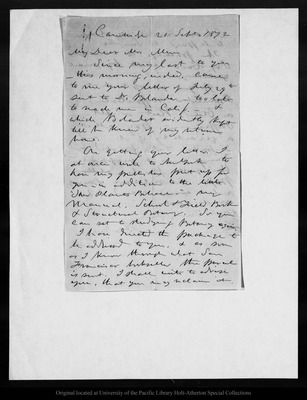 Cambridge 21 Sept 1872
My Dear Mr. Muir
Since my last to you
this morning, indeed, came
to me your letter of July 29
sent to Dr. Bolander too late
to reach me in Calif. &
which Bolander evidently kept
till he knew of my return
home.
On getting your letter I
at once write to New York to
have my publishers put up for
you in addition to the little
my
Manual, School & Field Book
& Structural Botany. So you
can set to studying Botany again
I have directed the package to
be addressed to you, & as soon
as I know through what San
Francisco bookseller the parcel
is sent, I shall write to advise
you, that you may reclaim it.
Original located at University of the Pacific Library Holt-Atherton Special Collections